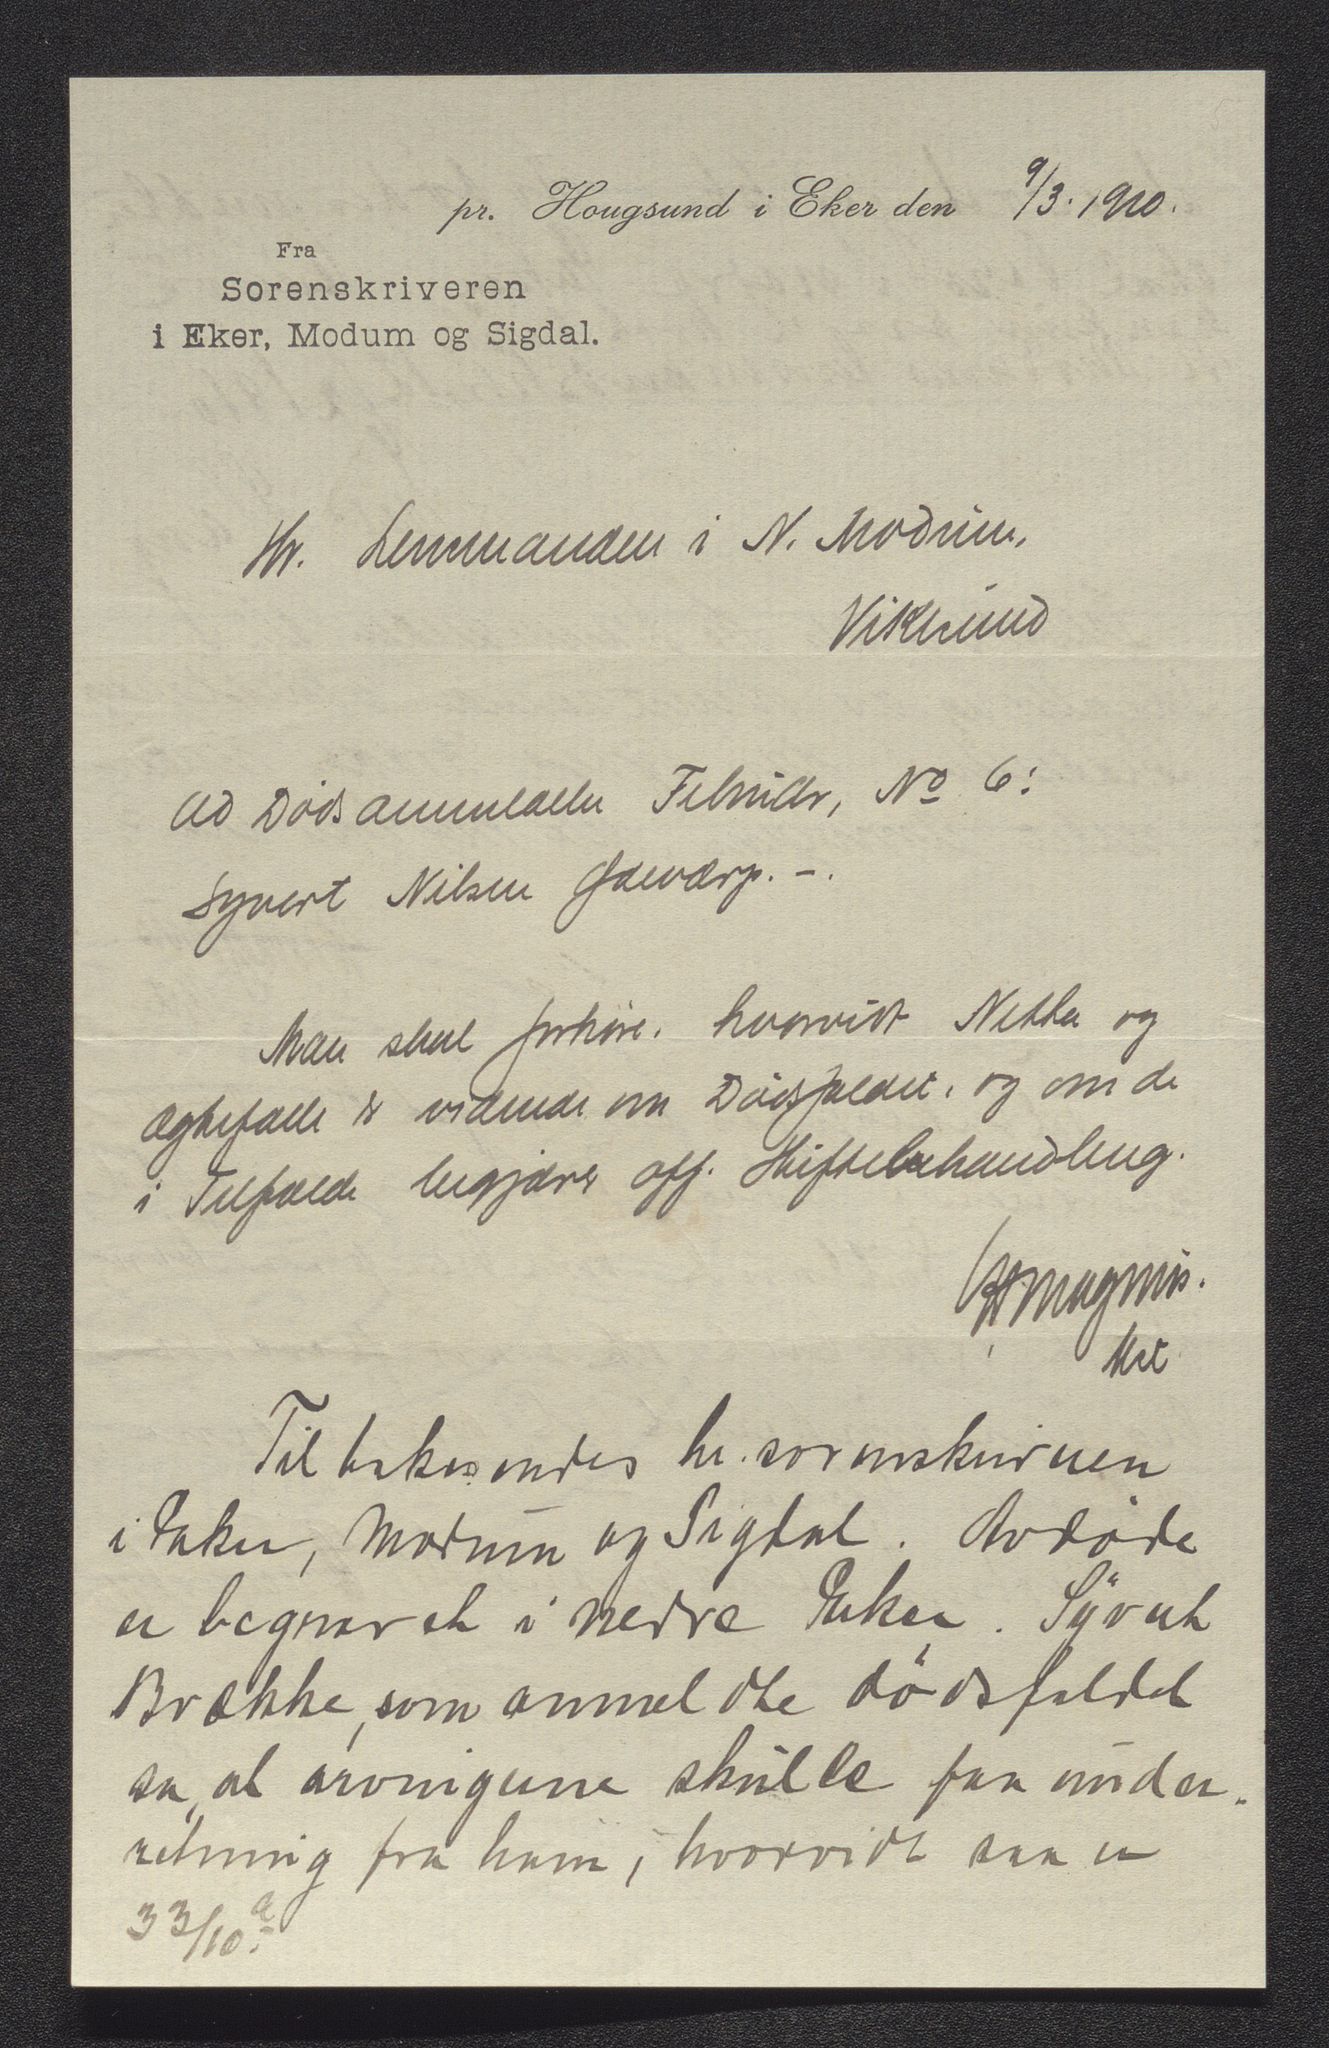 pr. Hougsund i Eker den 9/3. 1910.
Fra
Sorenskriveren
i Eker, Modum og Sigdal.
Hr. Lensmanden i N. Modum.
Vikersund
Ad Dødsanmeldelse Februar, No 6:
Syvert Nilsen
Man skal forhøre, hvorvidt Nilsen og
er vidende om Dødsfaldet, og om de
i Tilfælde begjærer off. Skiftebehandling.
Magnus.
Tilbakesendes hr. sorenskriveren
i Eker, Modum og Sigdal. Avdøde
er begravet i nedre Eker. Syvert
Brække, som anmeldte dødsfaldet
sa, at arvingerne skulde faa under-
retning fra ham, hvorvidt saa er
33/10 a.